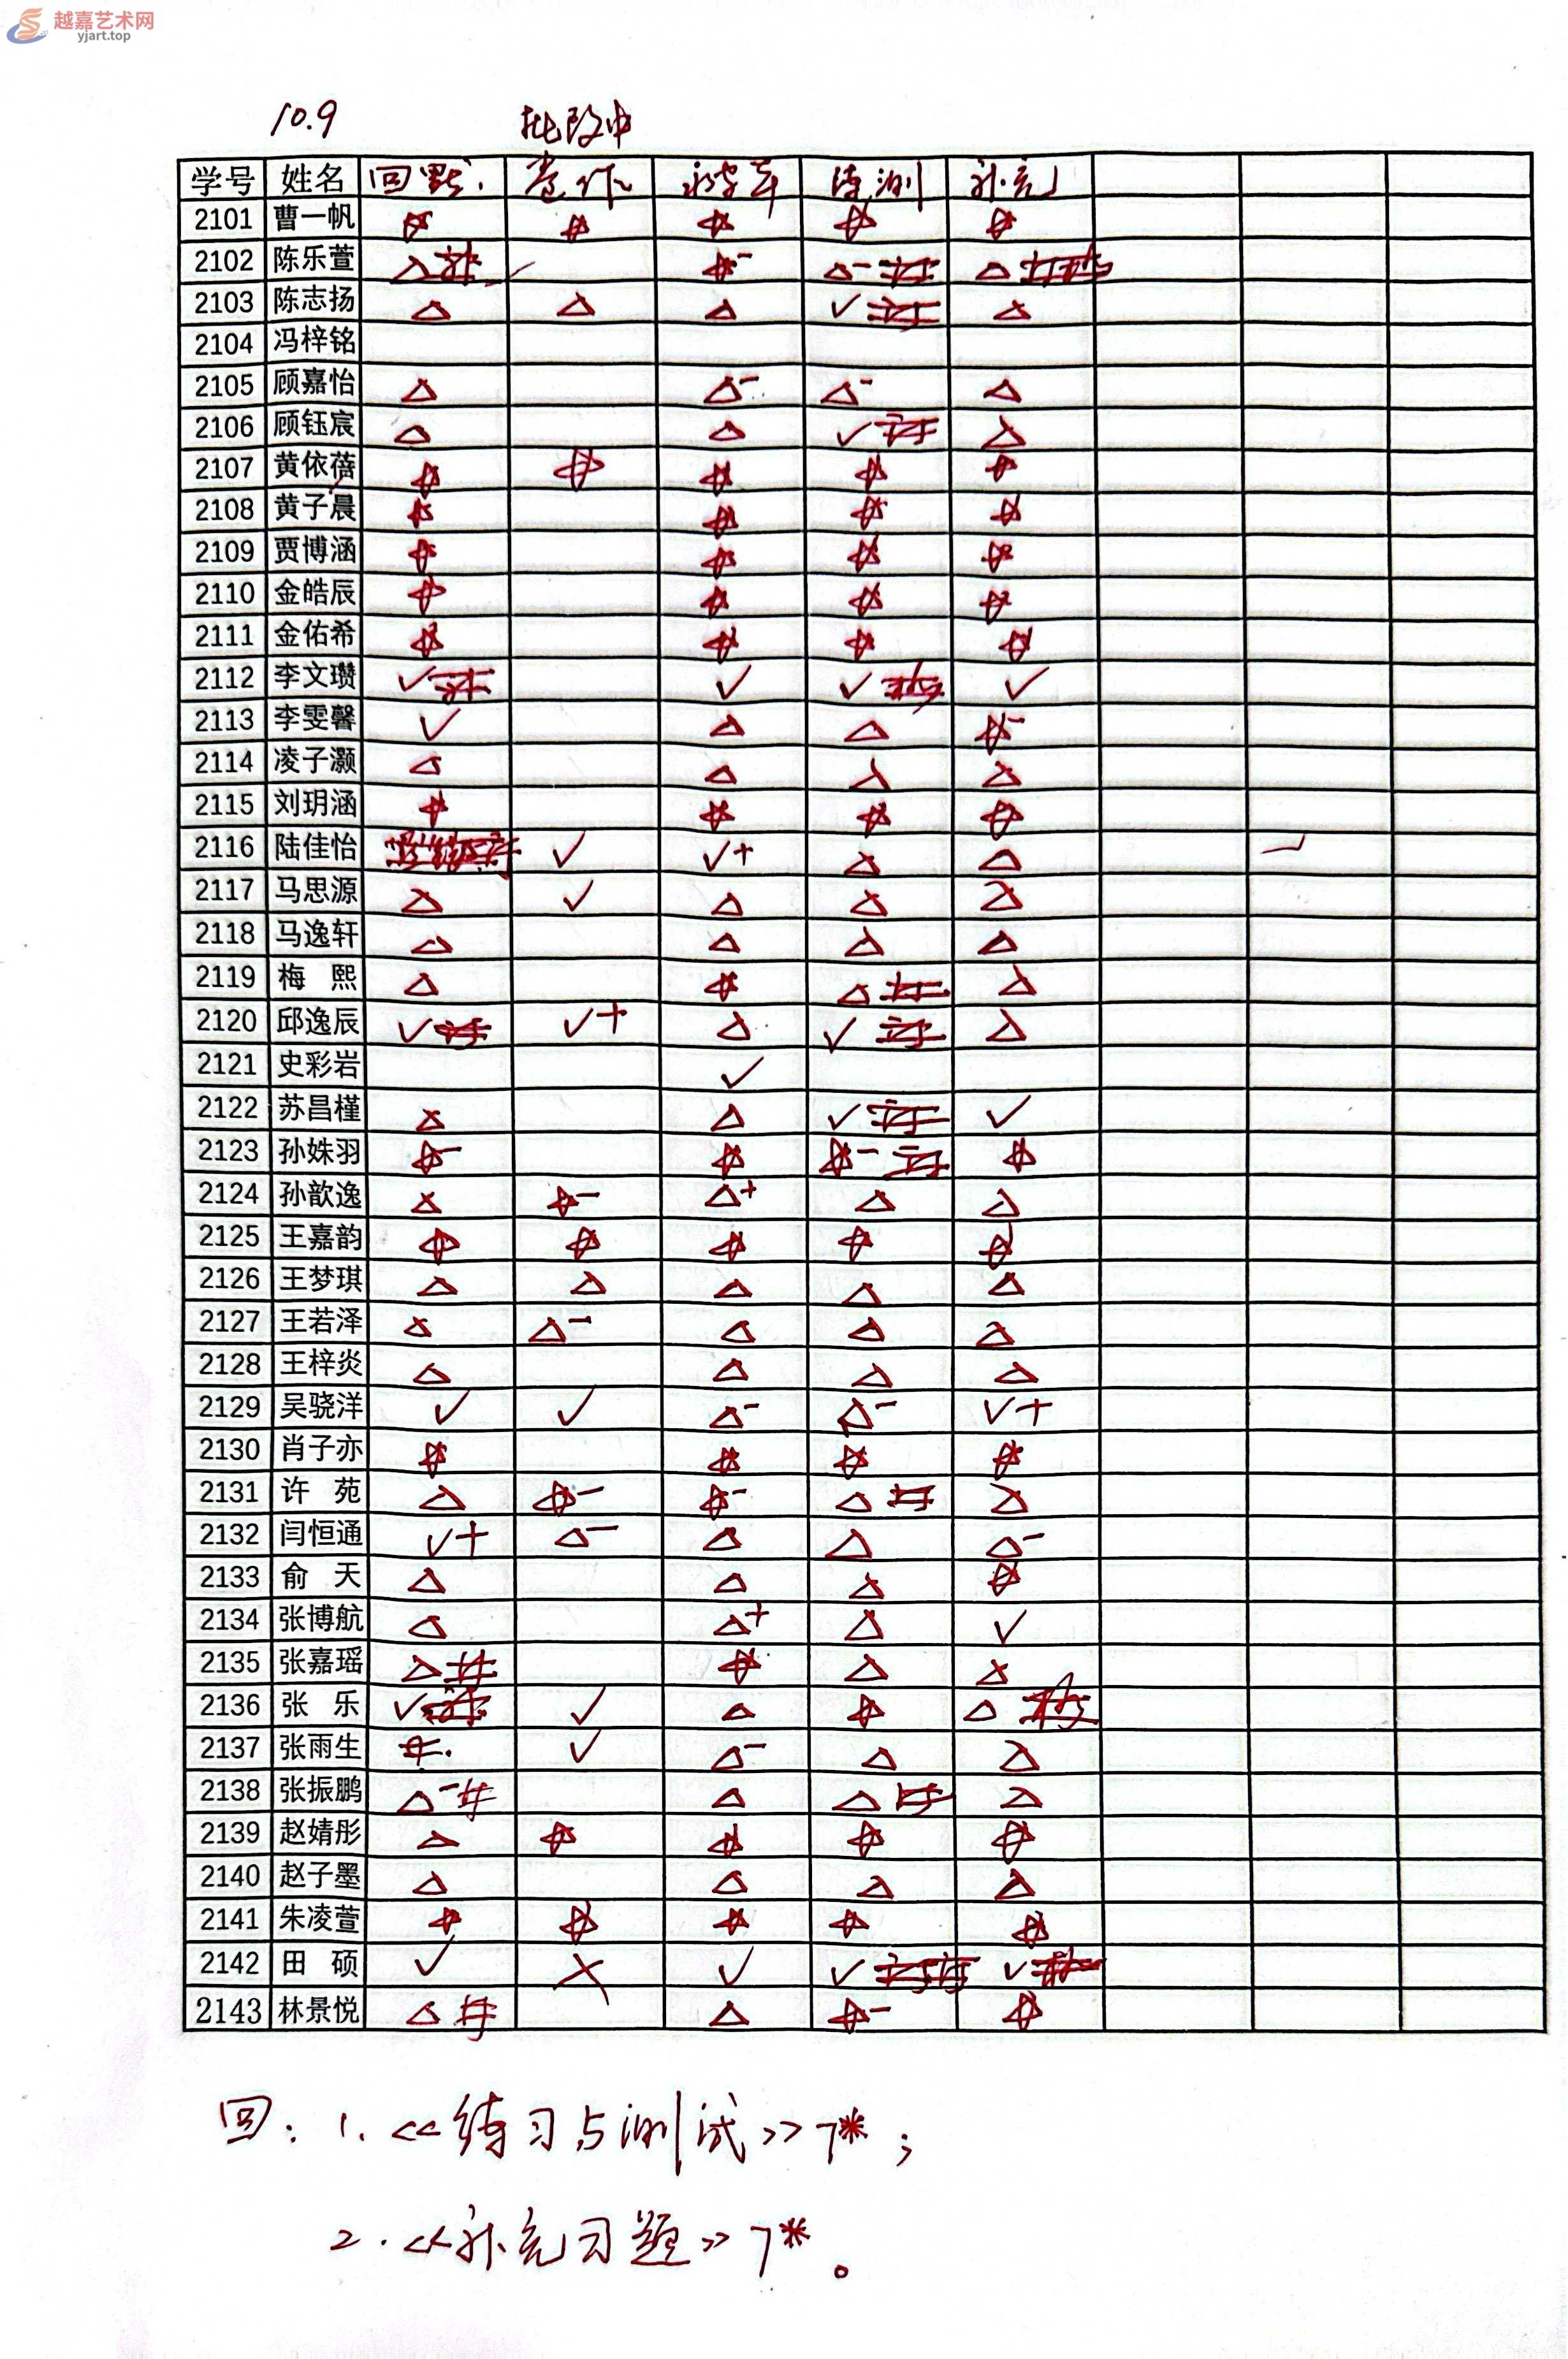 越嘉艺术网
yjart.top
10.9 批改中
学号 姓名 回默. 卷作 练测 补充
2101 曹一帆 ☆ ☆ ☆ ☆ ☆
2102 陈乐萱 △ ☆- △- △
2103 陈志扬 △ △ △ ✓ △
2104 冯梓铭
2105 顾嘉怡 △ △- △- △
2106 顾钰宸 △ △ ✓ △
2107 黄依蓓 ☆ ☆ ☆ ☆ ☆
2108 黄子晨 ☆ ☆ ☆ ☆
2109 贾博涵 ☆ ☆ ☆ ☆
2110 金皓辰 ☆ ☆ ☆ ☆
2111 金佑希 ☆ ☆ ☆ ☆
2112 李文瓒 ✓ ✓ ✓ ✓
2113 李雯馨 ✓ △ △ ☆-
2114 凌子灏 △ △ △ △
2115 刘玥涵 ☆ ☆ ☆ ☆
2116 陆佳怡 ✓ ✓+ △ △
2117 马思源 △ ✓ △ △ △
2118 马逸轩 △ △ △ △
2119 梅熙 △ ☆ △ △
2120 邱逸辰 ✓ ✓+ △ ✓ △
2121 史彩岩 ✓
2122 苏昌槿 △ △ ✓ ✓
2123 孙姝羽 ☆- ☆ ☆- ☆
2124 孙歆逸 △ ☆- △+ △ △
2125 王嘉韵 ☆ ☆ ☆ ☆ ☆
2126 王梦琪 △ △ △ △ △
2127 王若泽 △ △- △ △ △
2128 王梓炎 △ △ △ △
2129 吴骁洋 ✓ ✓ △- △- ✓+
2130 肖子亦 ☆ ☆ ☆ ☆
2131 许苑 △ ☆- ☆- △ △
2132 闫恒通 ✓+ △- △ △ △-
2133 俞天 △ △ △ ☆
2134 张博航 △ △+ △ ✓
2135 张嘉瑶 △ ☆ △ △
2136 张乐 ✓ ✓ △ ☆ △
2137 张雨生 ✓ △- △ △
2138 张振鹏 △- △ △ △
2139 赵婧彤 △ ☆ ☆ ☆ ☆
2140 赵子墨 △ △ △ △
2141 朱凌萱 ☆ ☆ ☆ ☆ ☆
2142 田硕 ✓ × ✓ ✓ ✓
2143 林景悦 △ △ ☆- ☆
回：1.《练习与测试》7*；
2.《补充习题》7*。